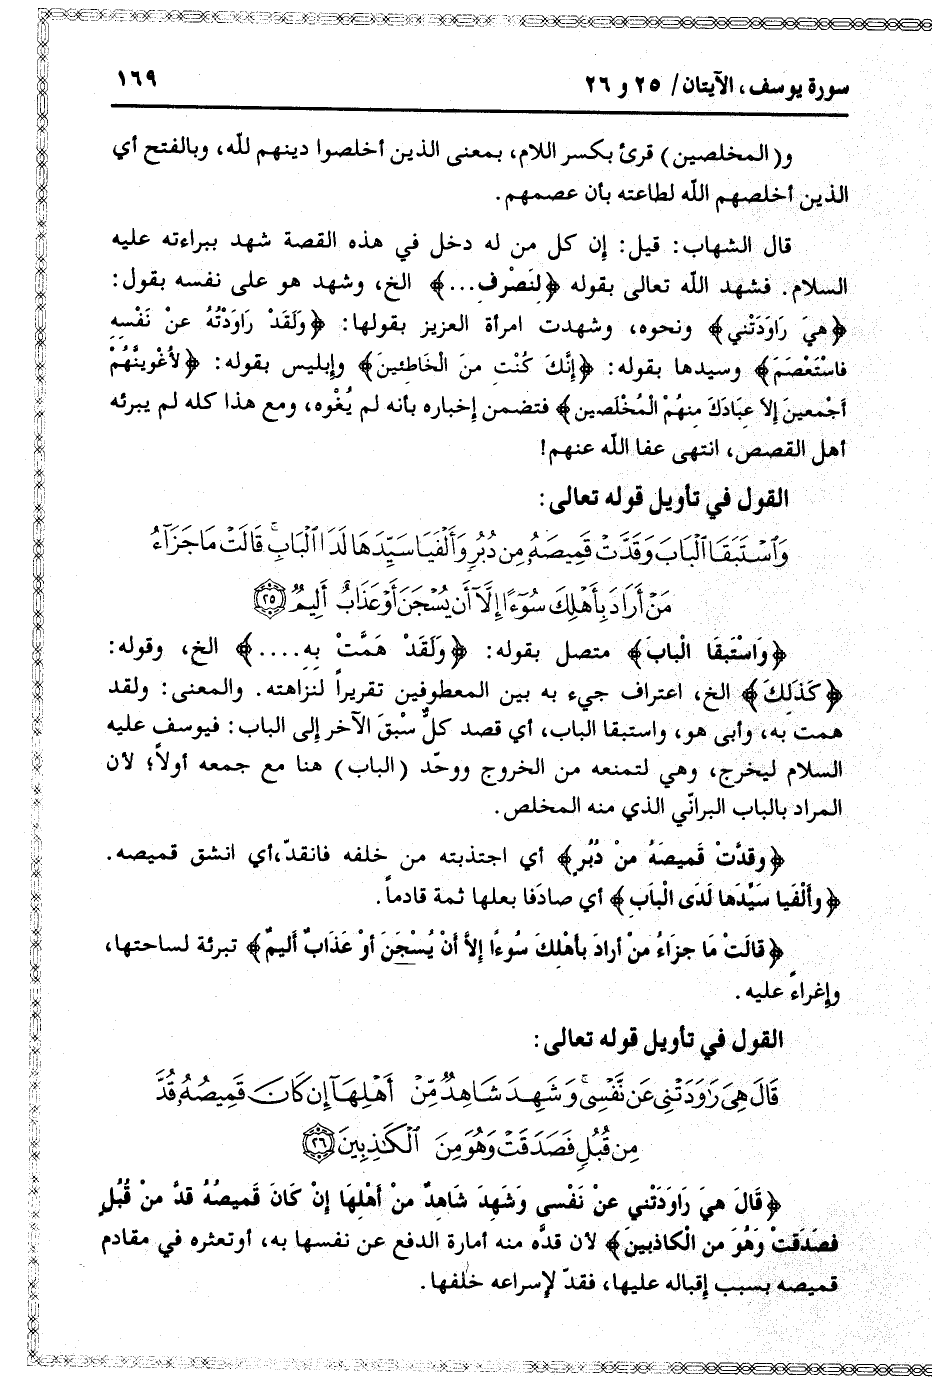 سورة يوسف، الآيتان/ ٢٥ و ٢٦ ١٦٩
و(المخلصين) قرئ بكسر اللام، بمعنى الذين أخلصوا دينهم لله، وبالفتح أي
الذين أخلصهم الله لطاعته بأن عصمهم.
قال الشهاب: قيل: إن كل من له دخل في هذه القصة شهد ببراءته عليه
السلام. فشهد الله تعالى بقوله ﴿لِنَصْرِفَ...﴾ الخ، وشهد هو على نفسه بقول:
﴿هِيَ رَاوَدَتْني﴾ ونحوه، وشهدت امرأة العزيز بقولها: ﴿وَلَقَدْ رَاوَدْتُهُ عَنْ نَفْسِهِ
فَاسْتَعْصَمَ﴾ وسيدها بقوله: ﴿إِنَّكَ كُنْتِ مِنَ الْخَاطِئينَ﴾ وإبليس بقوله: ﴿لأُغْوِيَنَّهُمْ
أَجْمَعِينَ إِلاَ عِبَادَكَ مِنهُمْ الْمُخْلَصين﴾ فتضمن إخباره بأنه لم يُغْوه، ومع هذا كله لم يبرئه
أهل القصص، انتهى عفا الله عنهم!
القول في تأويل قوله تعالى:
وَٱسۡتَبَقَا ٱلۡبَابَ وَقَدَّتۡ قَمِيصَهُۥ مِن دُبُرٖ وَأَلۡفَيَا سَيِّدَهَا لَدَا ٱلۡبَابِۚ قَالَتۡ مَا جَزَآءُ
مَنۡ أَرَادَ بِأَهۡلِكَ سُوٓءًا إِلَّآ أَن يُسۡجَنَ أَوۡ عَذَابٌ أَلِيمٞ ٢٥
﴿وَاسْتَبقَا الْبابَ﴾ متصل بقوله: ﴿وَلَقَدْ هَمَّتْ بِهِ....﴾ الخ، وقوله:
﴿كَذَلِكَ﴾ الخ، اعتراف جيء به بين المعطوفين تقريراً لنزاهته. والمعنى: ولقد
همت به، وأبى هو، واستبقا الباب، أي قصد كلٌّ سبْقَ الآخر إلى الباب: فيوسف عليه
السلام ليخرج، وهي لتمنعه من الخروج ووحّد (الباب) هنا مع جمعه أولاً؛ لأن
المراد بالباب البرانّي الذي منه المخلص.
﴿وقَدَّتْ قَمِيصَهُ مِنْ دُبُرٍ﴾ أي اجتذبته من خلفه فانقدّ،أي انشق قميصه.
﴿وأَلْفَيا سَيِّدَها لَدَى الْبَابِ﴾ أي صادَفا بعلها ثمة قادماً.
﴿قَالَتْ مَا جَزَاءُ مَنْ أَرادَ بأَهْلِكَ سُوءًا إِلاَّ أَنْ يُسْجَنَ أَوْ عَذَابٌ أَلِيمٌ﴾ تبرئة لساحتها،
وإغراءً عليه.
القول في تأويل قوله تعالى:
قَالَ هِيَ رَٰوَدَتۡنِي عَن نَّفۡسِيۚ وَشَهِدَ شَاهِدٞ مِّنۡ أَهۡلِهَآ إِن كَانَ قَمِيصُهُۥ قُدَّ
مِن قُبُلٖ فَصَدَقَتۡ وَهُوَ مِنَ ٱلۡكَٰذِبِينَ ٢٦
﴿قَالَ هِيَ رَاوَدَتْني عَنْ نَفْسي وَشَهِدَ شَاهِدٌ مِنْ أَهْلِهَا إِنْ كَانَ قَمِيصُهُ قدَّ مِنْ قُبُلٍ
فصَدَقَتْ وَهُوَ مِن الْكاذبينَ﴾ لأن قدَّه منه أمارة الدفع عن نفسها به، أوتعثره في مقادم
قميصه بسبب إقباله عليها، فقدّ لإسراعه خلفها.